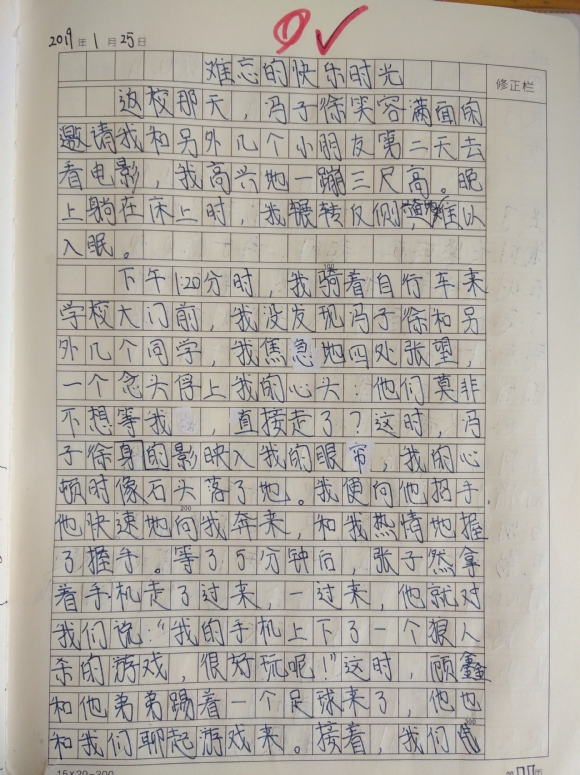 2019年1月25日
修正栏
难忘的快乐时光
返校那天，冯子徐笑容满面的
邀请我和另外几个小朋友第二天去
看电影，我高兴地一蹦三尺高。晚
上躺在床上时，我辗转反侧，难以
入眠。
下午1:20分时，我骑着自行车来
100
学校大门前，我没发现冯子徐和另
外几个同学，我焦急地四处张望，
一个念头浮上我的心头：他们莫非
不想等我，直接走了？这时，冯
子徐身的影映入我的眼帘，我的心
顿时像石头落了地。我便向他招手，
200
他快速地向我奔来，和我热情地握
了握手。等了5分钟后，张子然拿
着手机走了过来，一过来，他就对
我们说：“我的手机上下了一个狠人
杀的游戏，很好玩呢！”这时，顾鑫
和他弟弟踢着一个足球来了，他也
300
和我们聊起游戏来。接着，我们
15×20=300